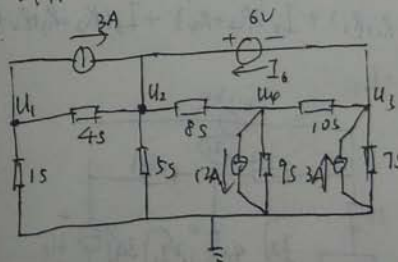 3A 6V
+ −
I₆
U₁ U₂ U₄ U₃
4S 8S 10S
1S 5S 12A 9S 3A 7S